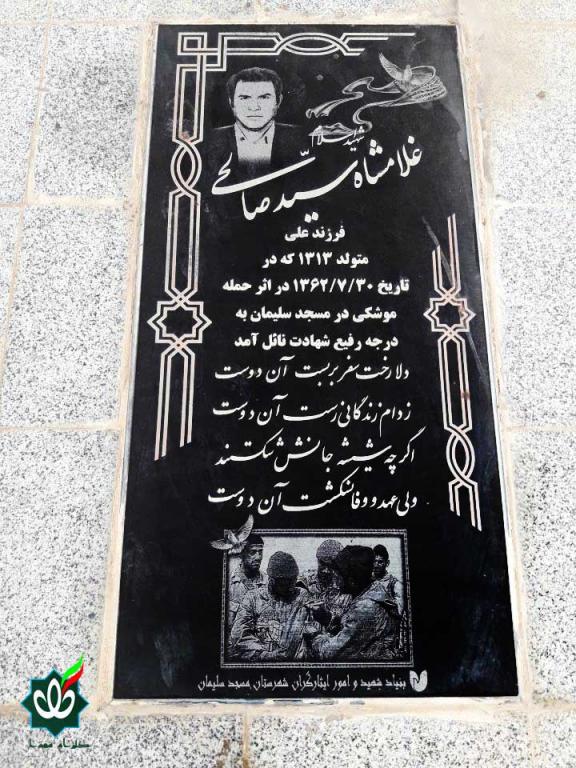 شهید اسلام
غلامشاه سید صالحی
فرزند علی
متولد ۱۳۱۳ که در
تاریخ ۱۳۶۲/۷/۳۰ در اثر حمله
موشکی در مسجد سلیمان به
درجه رفیع شهادت نائل آمد
دلا رخت سفر بربست آن دوست
ز دام زندگانی رست آن دوست
اگر چه شیشه جانش شکستند
ولی عهد و وفا نشکست آن دوست
بنیاد شهید و امور ایثارگران شهرستان مسجد سلیمان